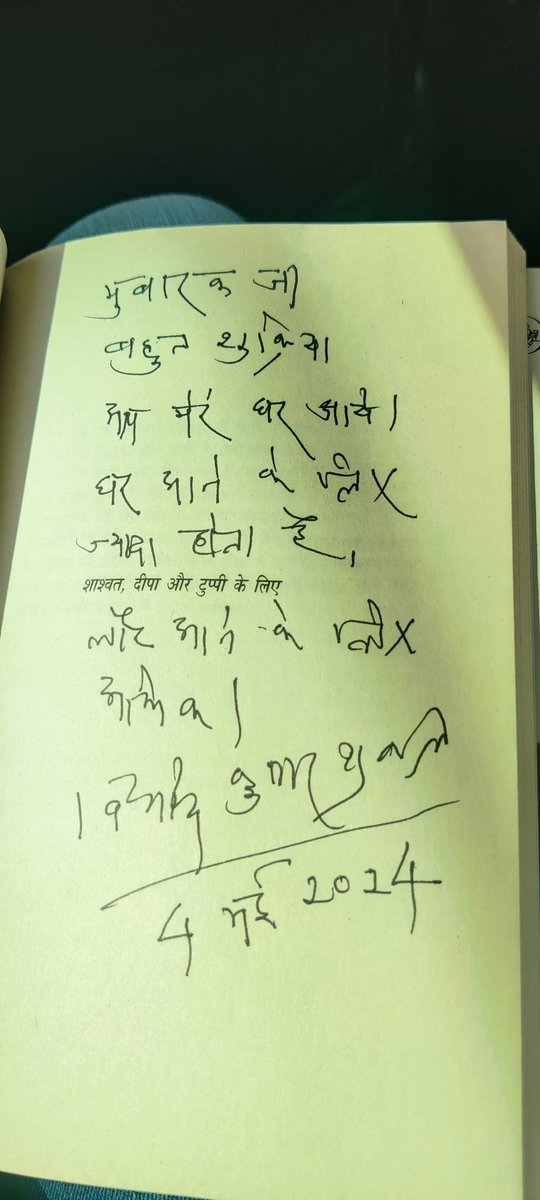 मुबारक जी
बहुत शुक्रिया
आप मेरे घर आये।
घर आने के लिए
ज्यादा होता है।
शाश्वत, दीपा और टुप्पी के लिए
लौट आने के लिए
अधिक।
विनोद कुमार शुक्ल
4 मई 2024